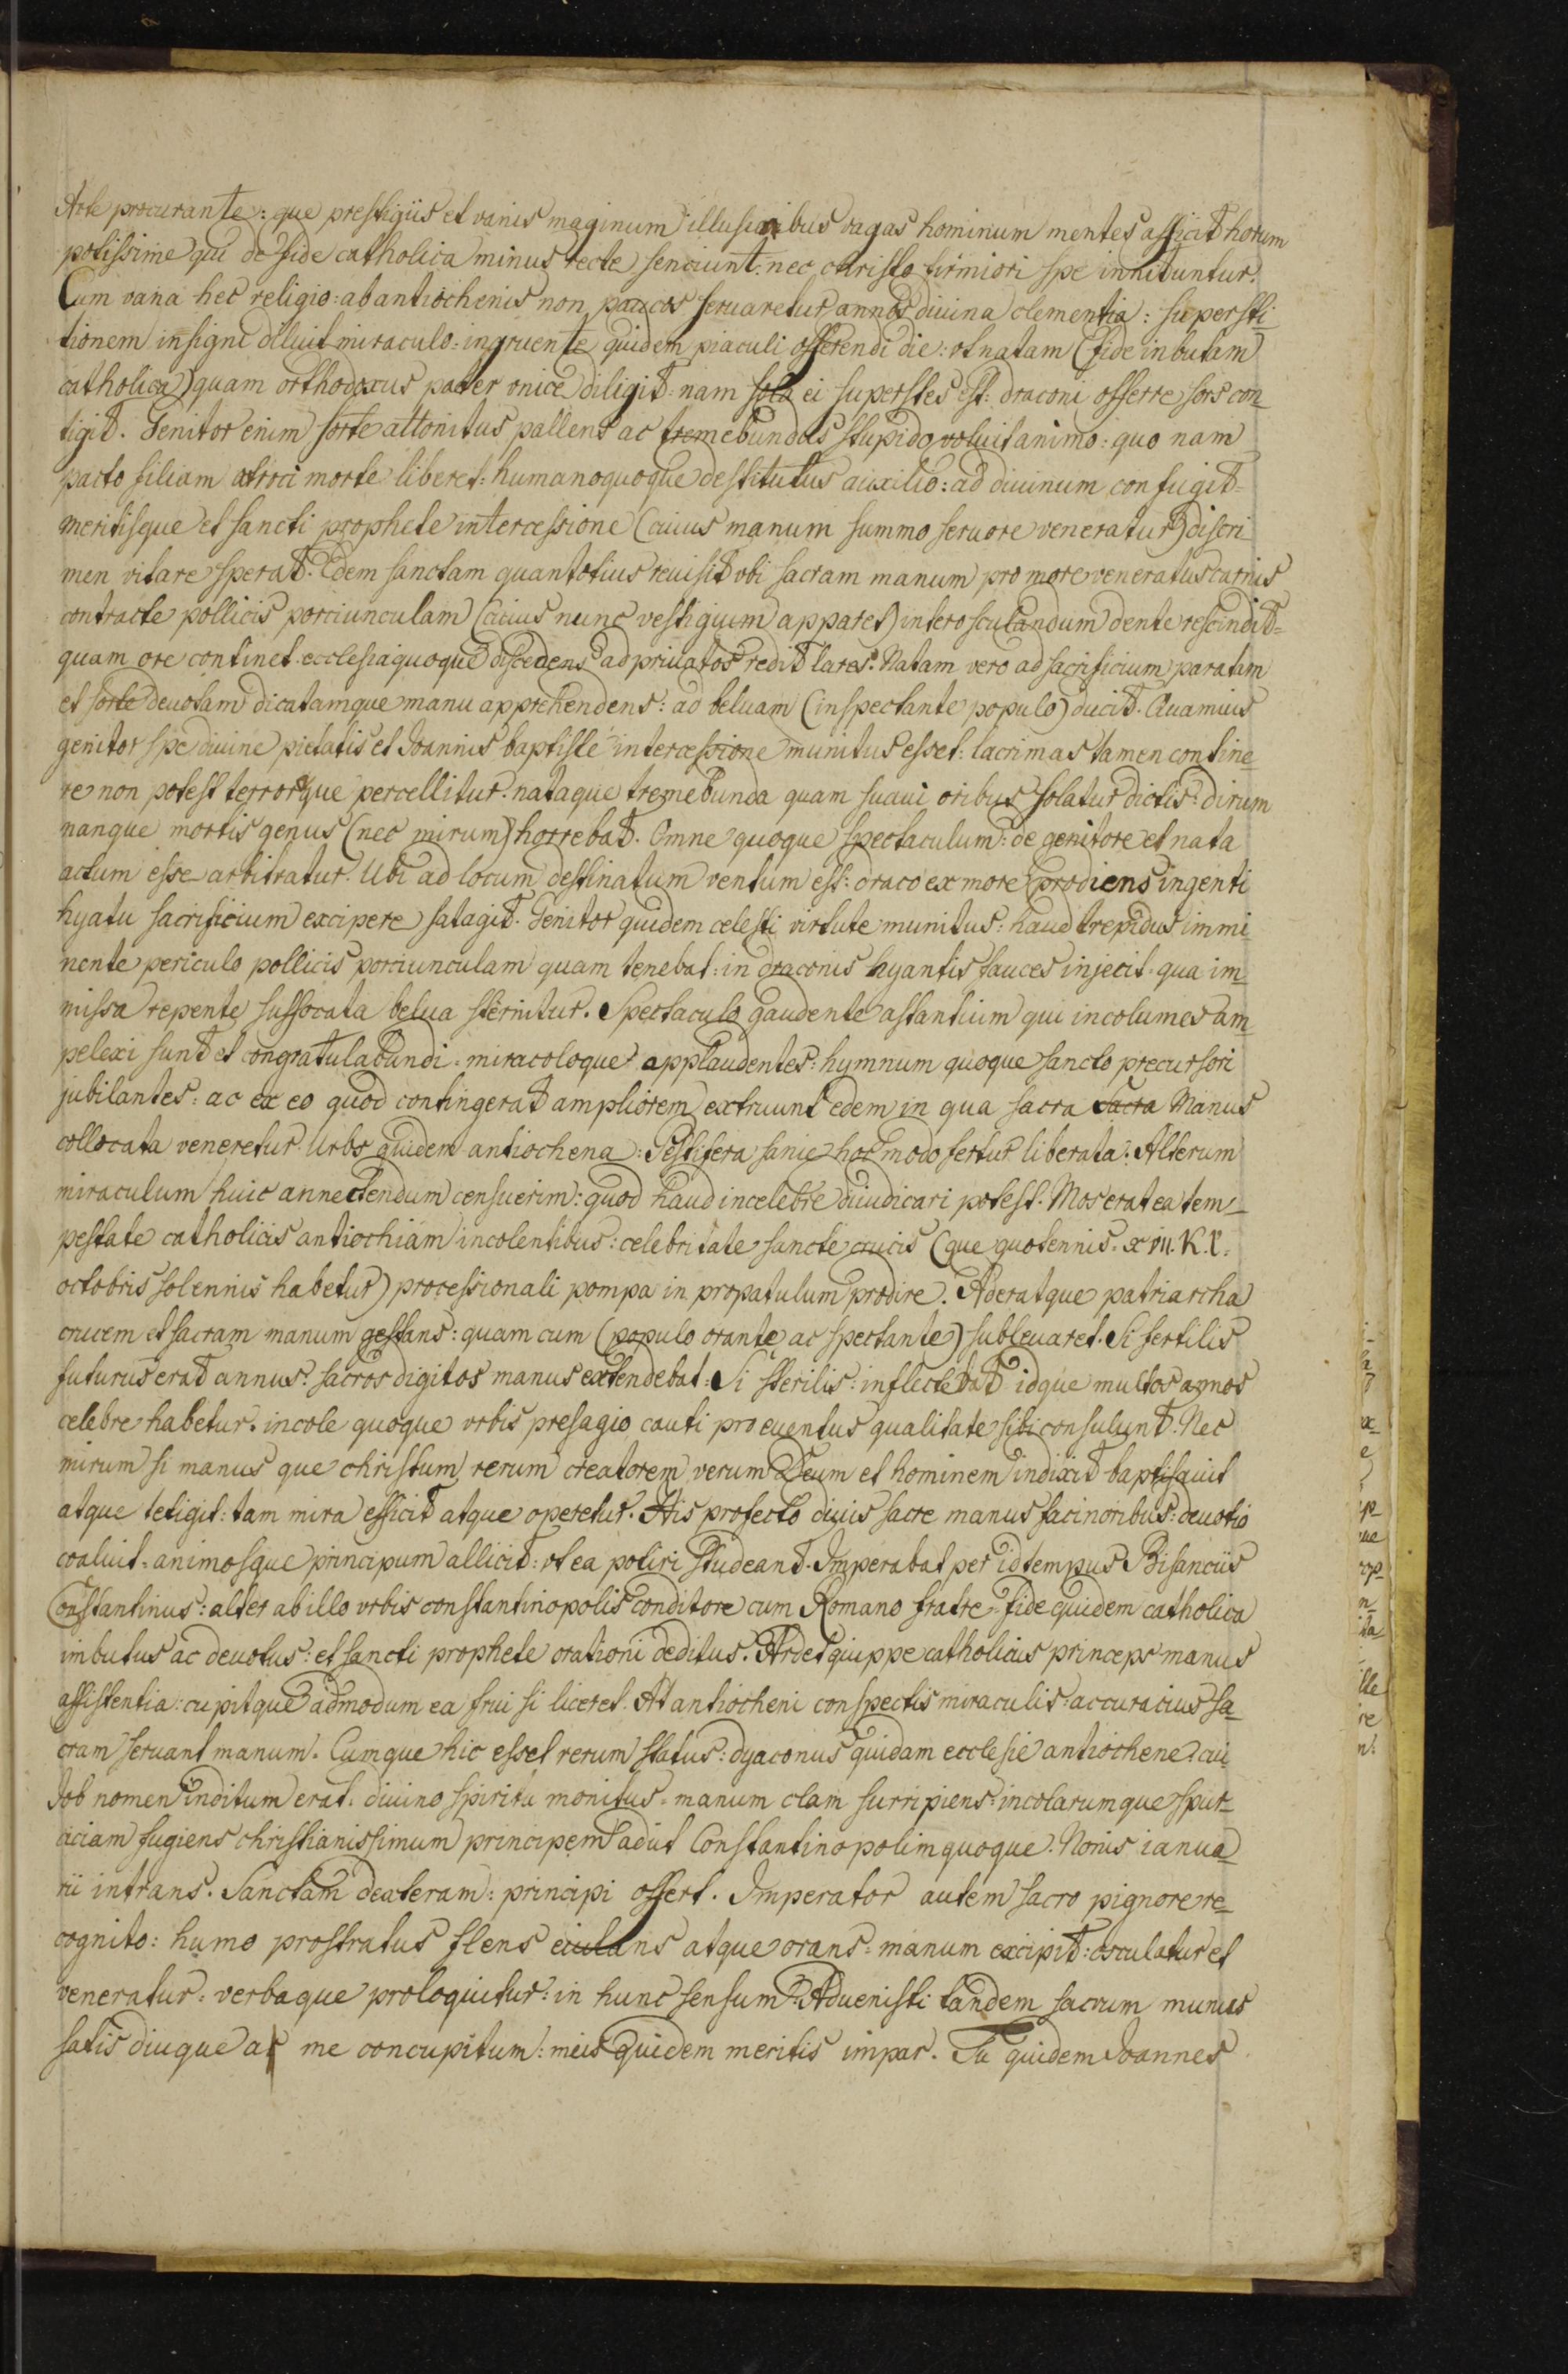 Arte procurante: que prestigiis et vanis maginum illusionibus vagas hominum mentes afficit horum
potissime qui de fide catholica minus recte senciunt: nec christo firmiori spe innituntur.
Cum vana hec religio: ab antiochenis non paucos seruaretur annos diuina clementia: supersti-
tionem insigni diluit miraculo: ingruente quidem piaculi offerendi die: vt natam (fide inbutam
catholica) quam orthodoxus pater vnice diligit: nam sola ei superstes est: draconi offerre sors con-
tigit. Genitor enim sorte attonitus pallens ac tremebundus stupido voluit animo: quo nam
pacto filiam atroci morte liberet: humanoquoque destitutus auxilio: ad diuinum confugit=
meritisque et sancti prophete intercessione (cuius manum summo feruore veneratur) discri-
men vitare sperat. Edem sanctam quantotius reuisit vbi sacram manum pro more veneratus carnis
contracte pollicis porciunculam (cuius nunc vestigium apparet) inter osculandum dente rescindit=
quam ore continet. ecclesiaquoque discedens ad priuatos redit lares. Natam vero ad sacrificium paratam
et sorte deuotam dicatamque manu apprehendens: ad beluam (inspectante populo) ducit. Quamuis
genitor spe diuine pietatis et Ioannis baptiste intercessione munitus esset: lacrimas tamen contine-
re non potest terrorque percellitur. nataque tremebunda quam suaui oribus solatur dictis: dirum
nanque mortis genus (nec mirum) horrebat. Omne quoque spectaculum: de genitore et nata
actum esse arbitratur. Ubi ad locum destinatum ventum est: draco ex more prodiens ingenti
hyatu sacrificium excipere satagit. Genitor quidem celesti virtute munitus: haud trepidus immi-
nente periculo pollicis porciunculam quam tenebat: in draconis hyantis fauces injecit. qua im-
missa repente suffocata belua sternitur. Spectaculo gaudente astantium qui incolumes am-
pelexi sunt et congratulabundi: miracoloque applaudentes: hymnum quoque sancto precursori
jubilantes: ac ex eo quod contingerat ampliorem extruunt edem in qua sacra sacra Manus
collocata veneretur. Urbs quidem antiochena: Pestifera sanie hoc modo fertur liberata. Alterum
miraculum huic annectendum censuerim: quod haud incelebre diiudicari potest. Mos erat ea tem-
pestate catholicis antiochiam incolentibus: celebritate sancte crucis (que quotennis. xvii. K.l.
octobris solennis habetur) processionali pompa in propatulum prodire. Aderatque patriarcha
crucem et sacram manum gestans: quam cum (populo orante ac spectante) subleuaret. Si fertilis
futurus erat annus: sacros digitos manus extendebat: Si sterilis: inflectebat idque multos annos
celebre habetur. incole quoque vrbis presagio cauti pro euentus qualitate sibi consulunt. Nec
mirum si manus que christum rerum creatorem verum Deum et hominem indixit baptisauit
atque tetigit: tam mira efficit atque operetur. His profecto diuis sacre manus facinoribus: deuotio
coaluit. animosque principum allicit: vt ea potiri studeant. Imperabat per id tempus Bisanciis
Constantinus: alter ab illo vrbis constantinopolis conditore cum Romano fratre. fide quidem catholica
imbutus ac deuotus: et sancti prophete orationi deditus. Ardet quippe catholicus princeps manus
assistentia: cupitque admodum ea frui si liceret. At antiocheni conspectis miraculis: accuracius sa-
cram seruant manum. Cumque hic esset rerum status: dyaconus quidam ecclesie antiochene: cui
Iob nomen inditum erat: diuino spiritu monitus. manum clam surripiens: incolarumque spur-
ciciam fugiens christianissimum principem adiit Constantinopolimquoque. Nonis ianua-
rii intrans. Sanctam dexteram: principi offert. Imperator autem sacro pignore re-
cognito: humo prostratus flens eiulans atque orans: manum excipit: osculatur et
veneratur. verbaque proloquitur: in hunc sensum: Aduenisti tandem sacrum munus
satis diuque a me concupitum: meis quidem meritis impar. Tu quidem Ioannes